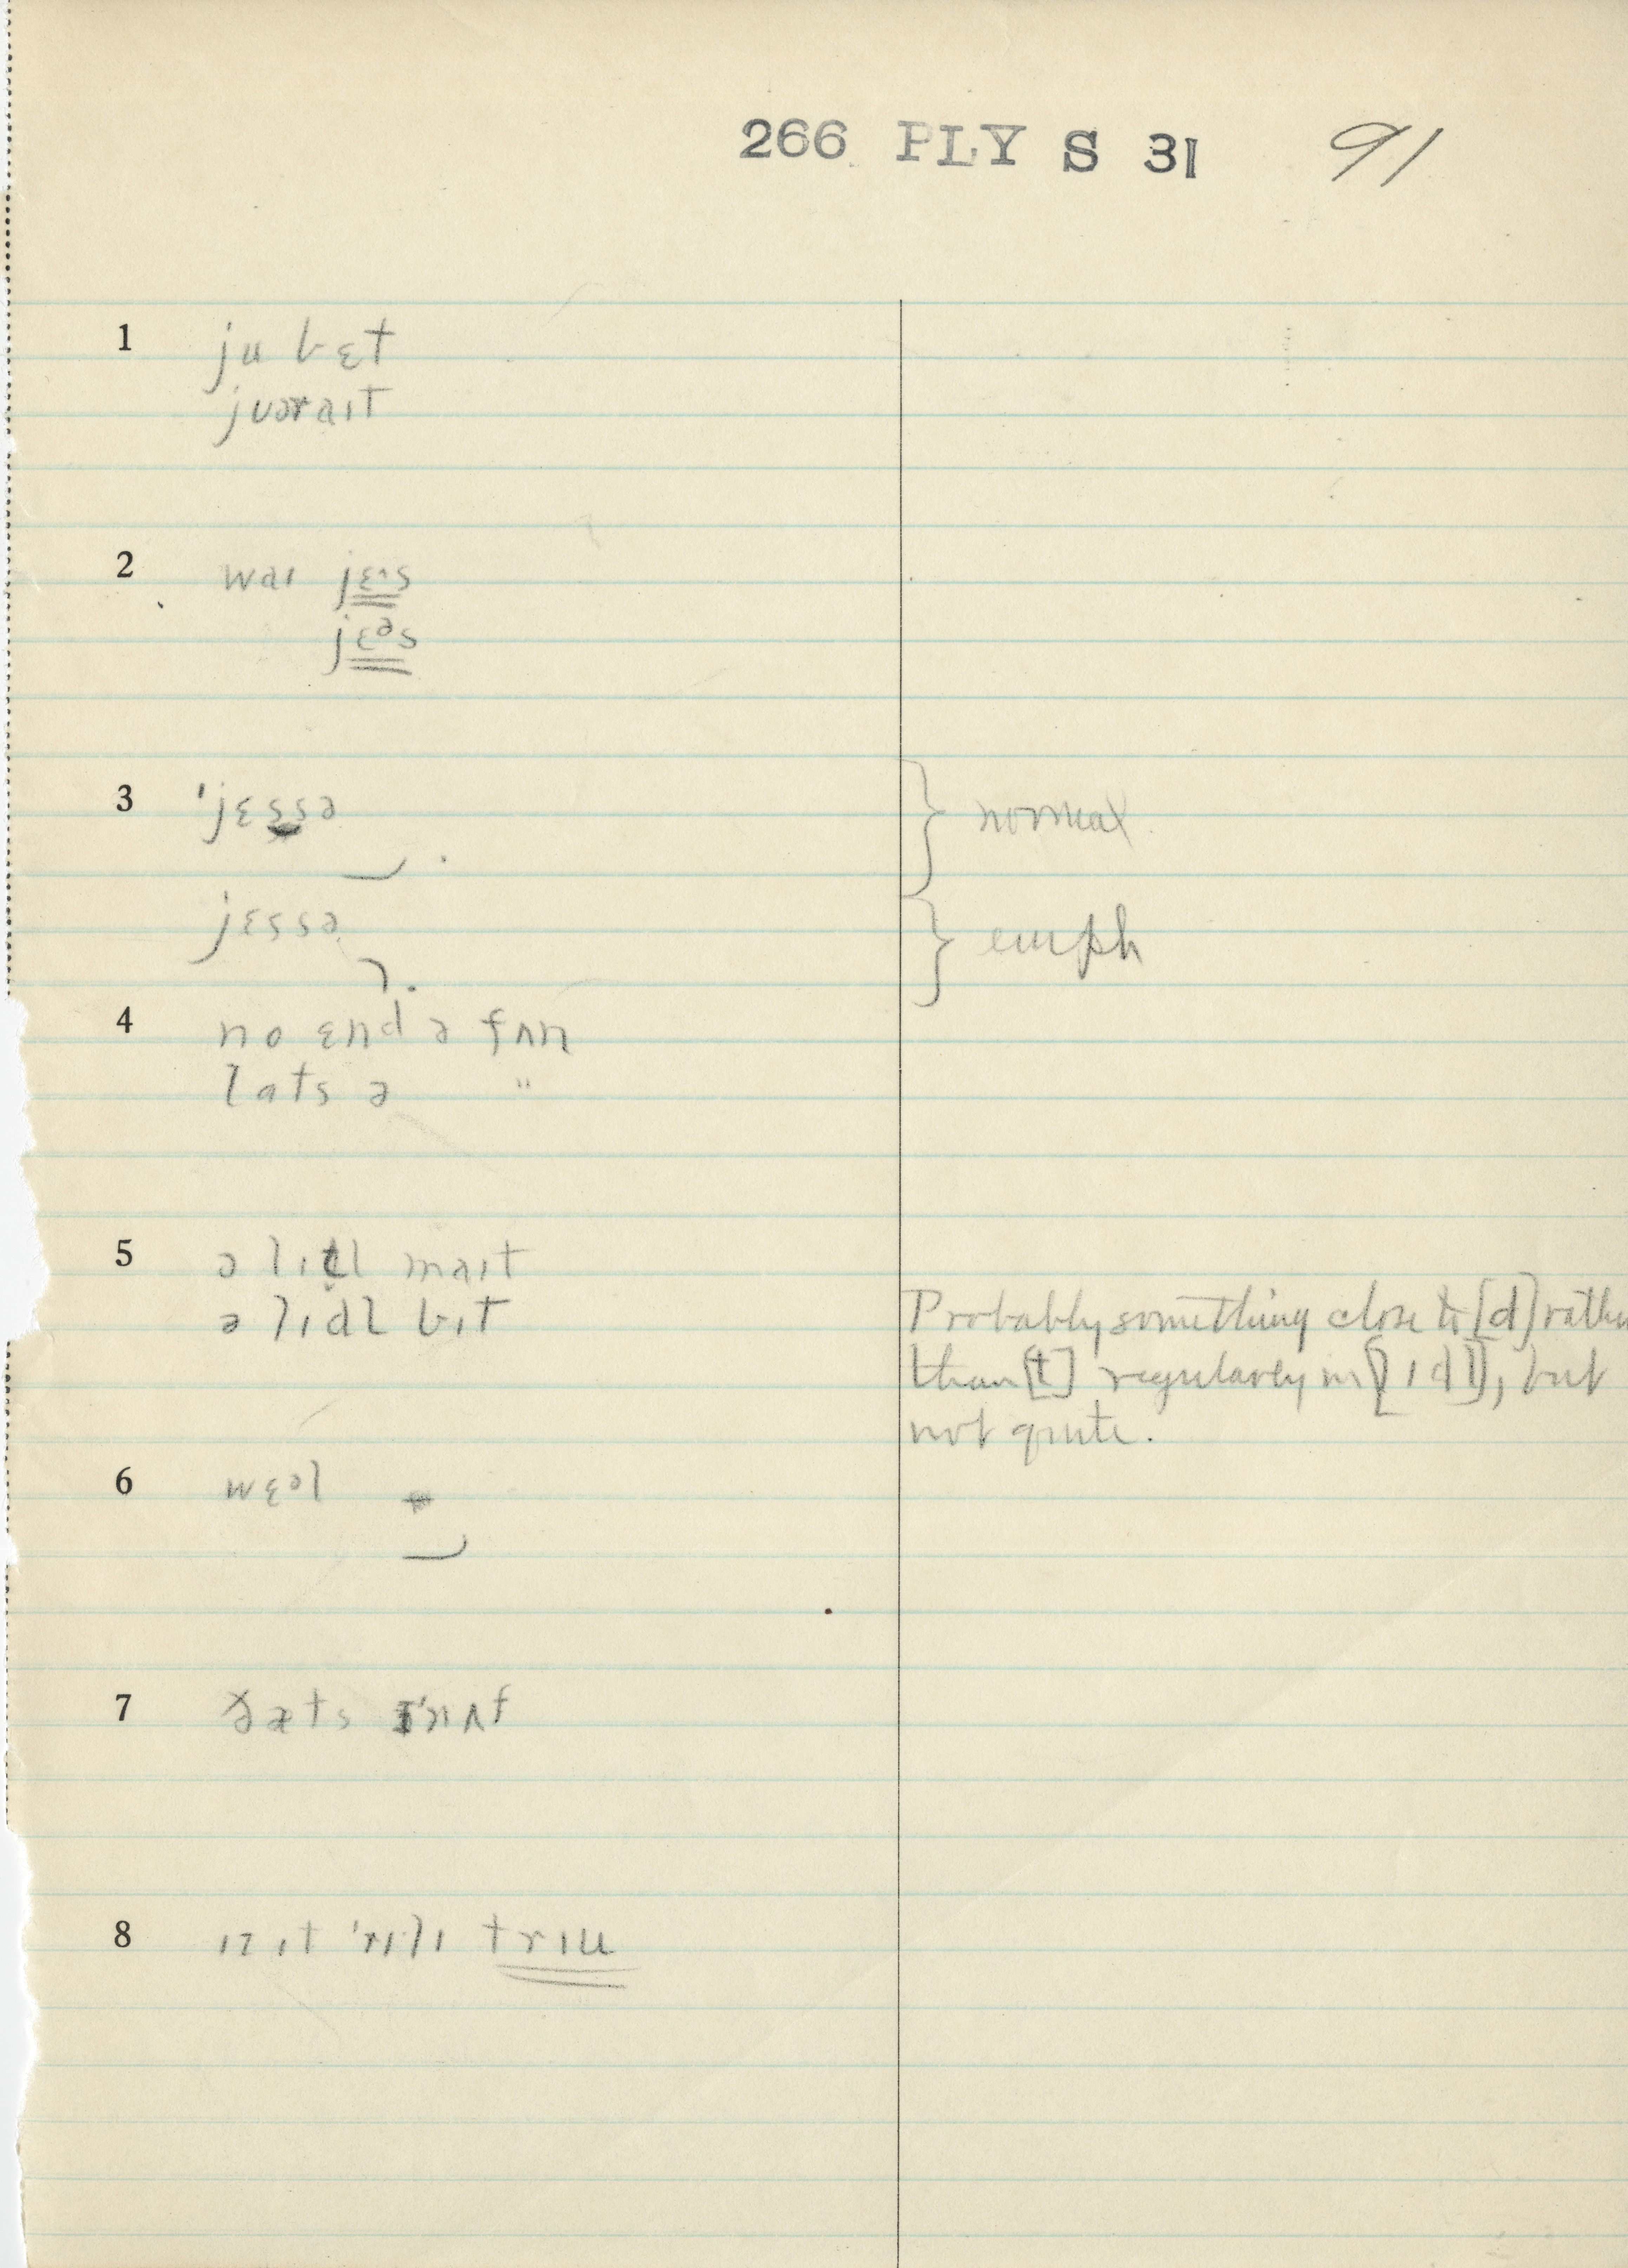 266 PLY S 31 91
1 ju bɛt
juəraɪt
2 waɪ jɛˑs
jɛᵊs
3 ˈjɛssə } normal
jɛssə } emph
4 no ɛnd ə fʌn
lats ə "
5 ə lɪt̬l maɪt
ə lɪdl bɪt
Probably something close to [d] rather
than [t] regularly in [lɪdl], but
not quite.
6 wɛᵊl
7 ðæts ɪˈnʌf
8 ɪz ɪt ˈrɪlɪ trɪu